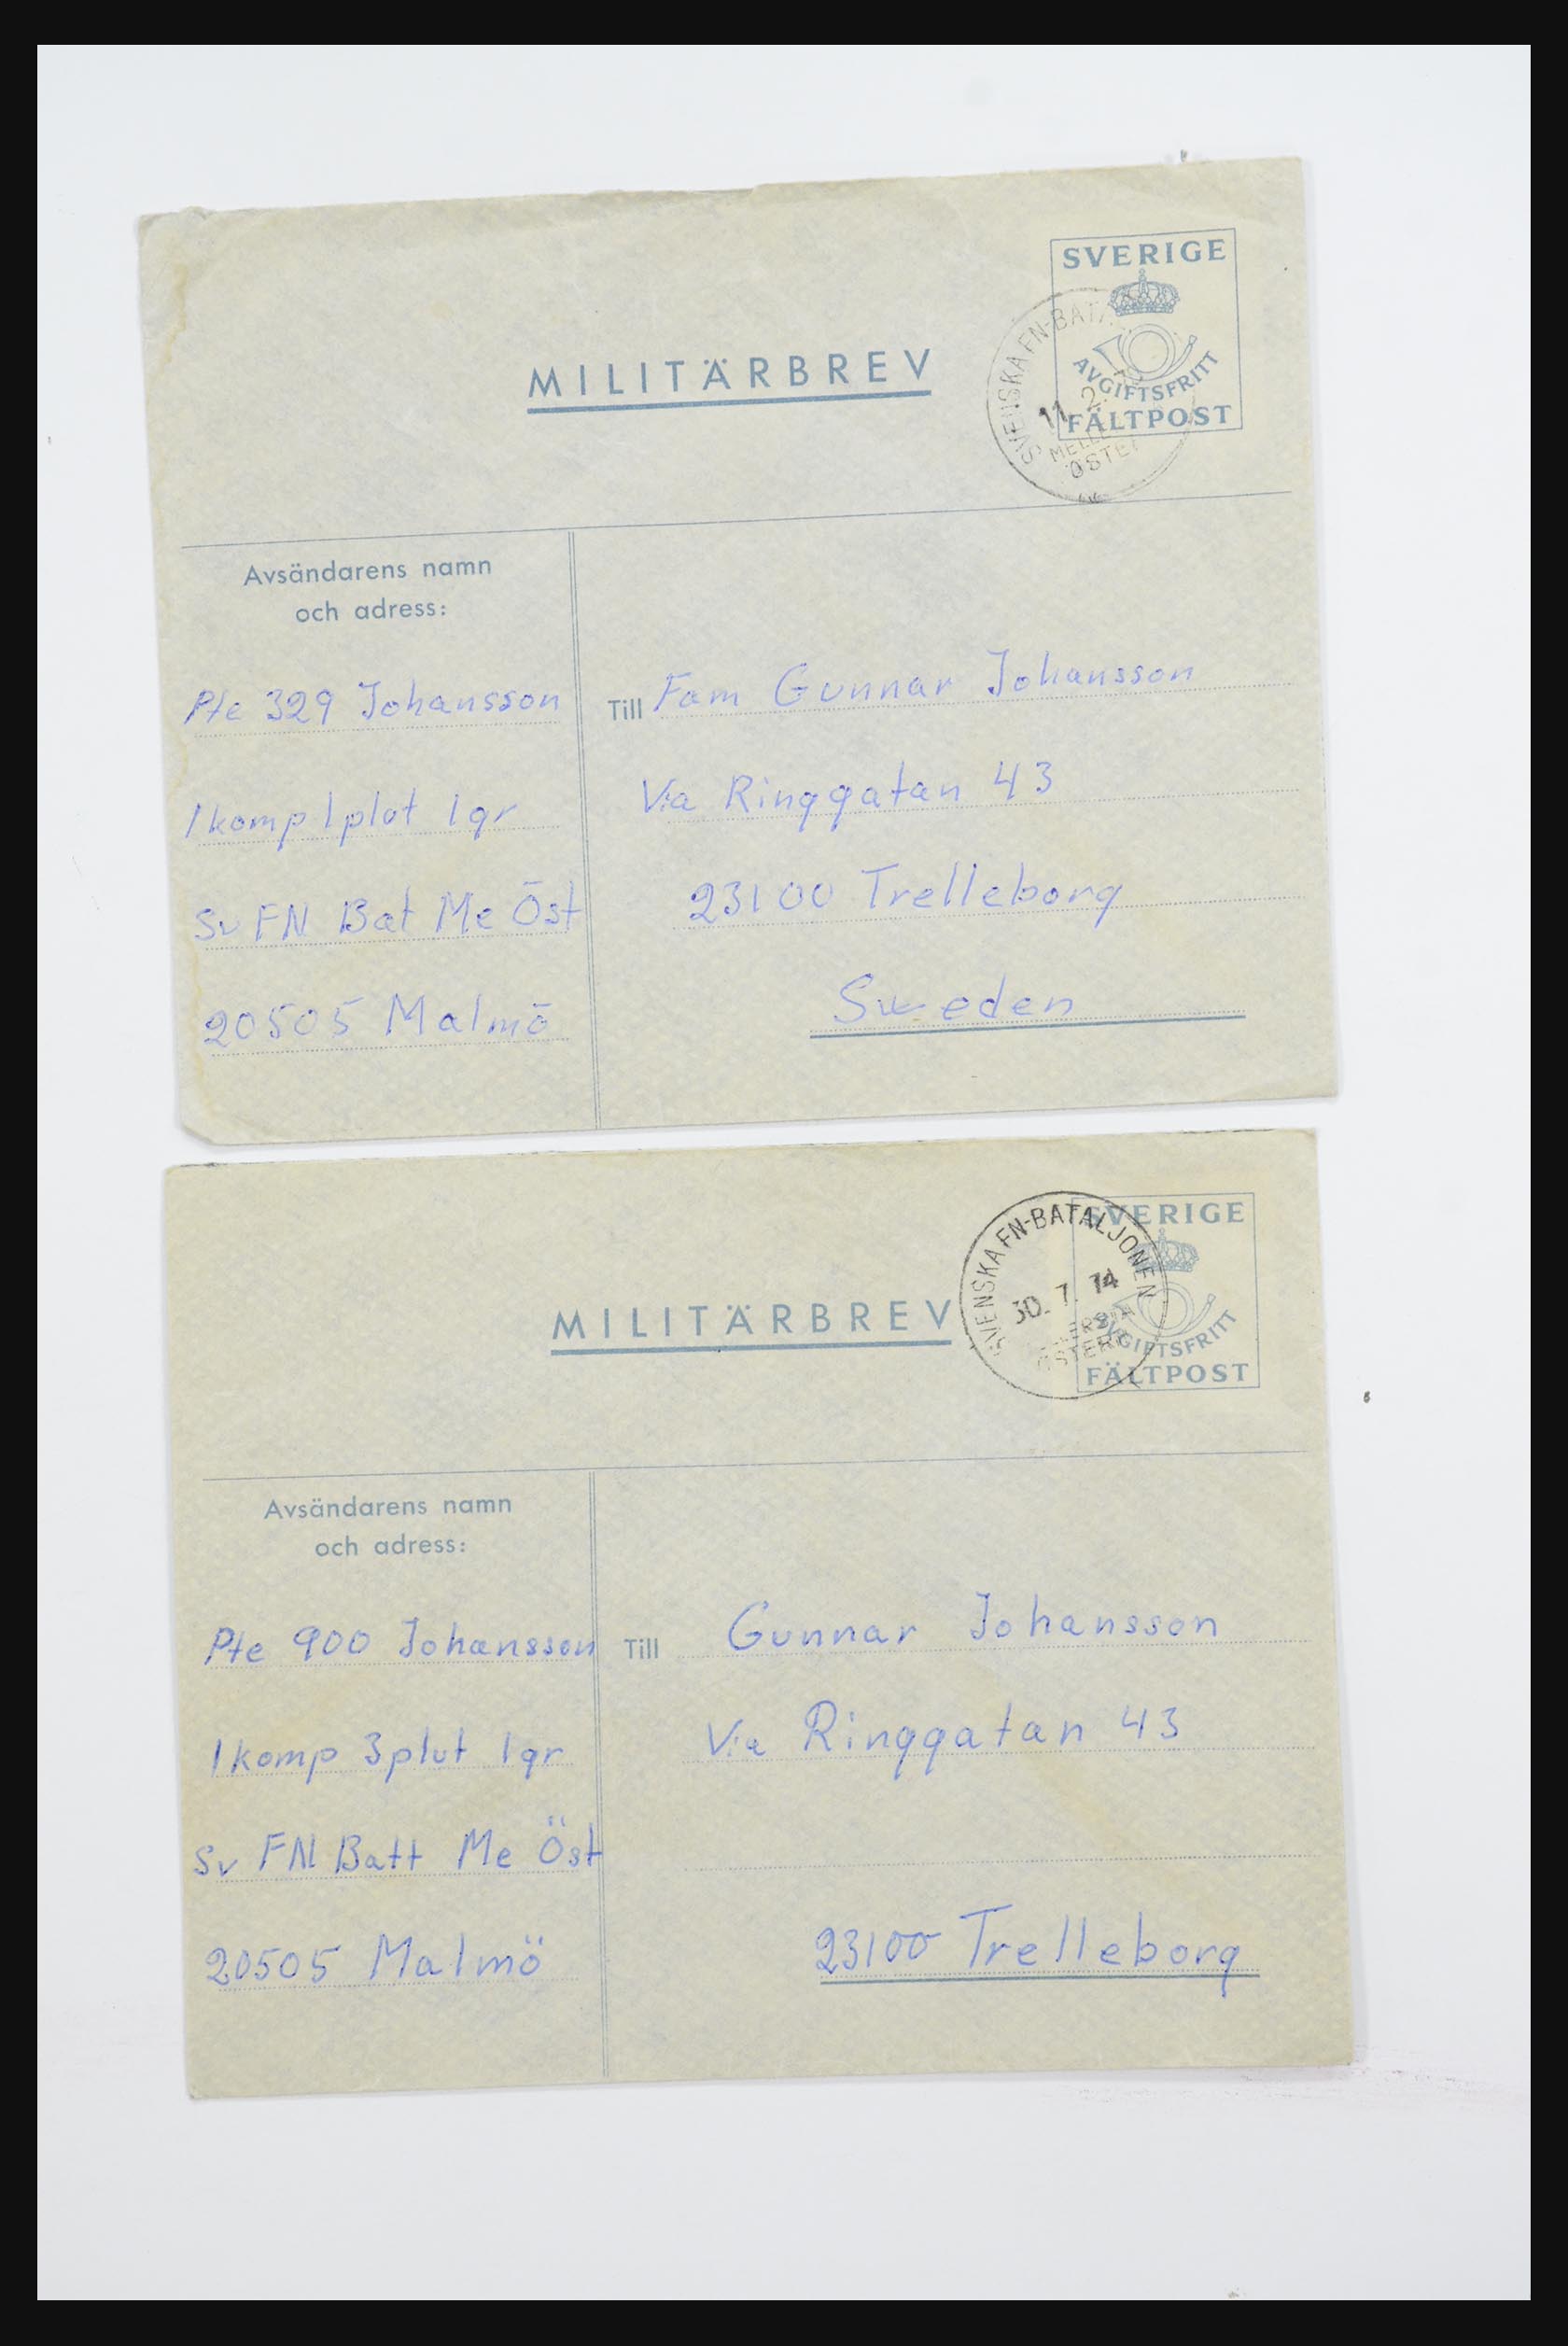 SVERIGE
AVGIFTSFRITT
FÄLTPOST
SVENSKA FN-BATA
11. 2.
ÖSTE
MILITÄRBREV
Avsändarens namn
och adress:
Pte 329 Johansson
1komp 1plut 1gr
Sv FN Bat Me Öst
20505 Malmö
Till Fam Gunnar Johansson
Via Ringgatan 43
23100 Trelleborg
Sweden
SVERIGE
AVGIFTSFRITT
FÄLTPOST
SVENSKA FN-BATALJONEN
30. 7. 74
MILITÄRBREV
Avsändarens namn
och adress:
Pte 900 Johansson
1komp 3plut 1gr
Sv FN Batt Me Öst
20505 Malmö
Till Gunnar Johansson
Via Ringgatan 43
23100 Trelleborg